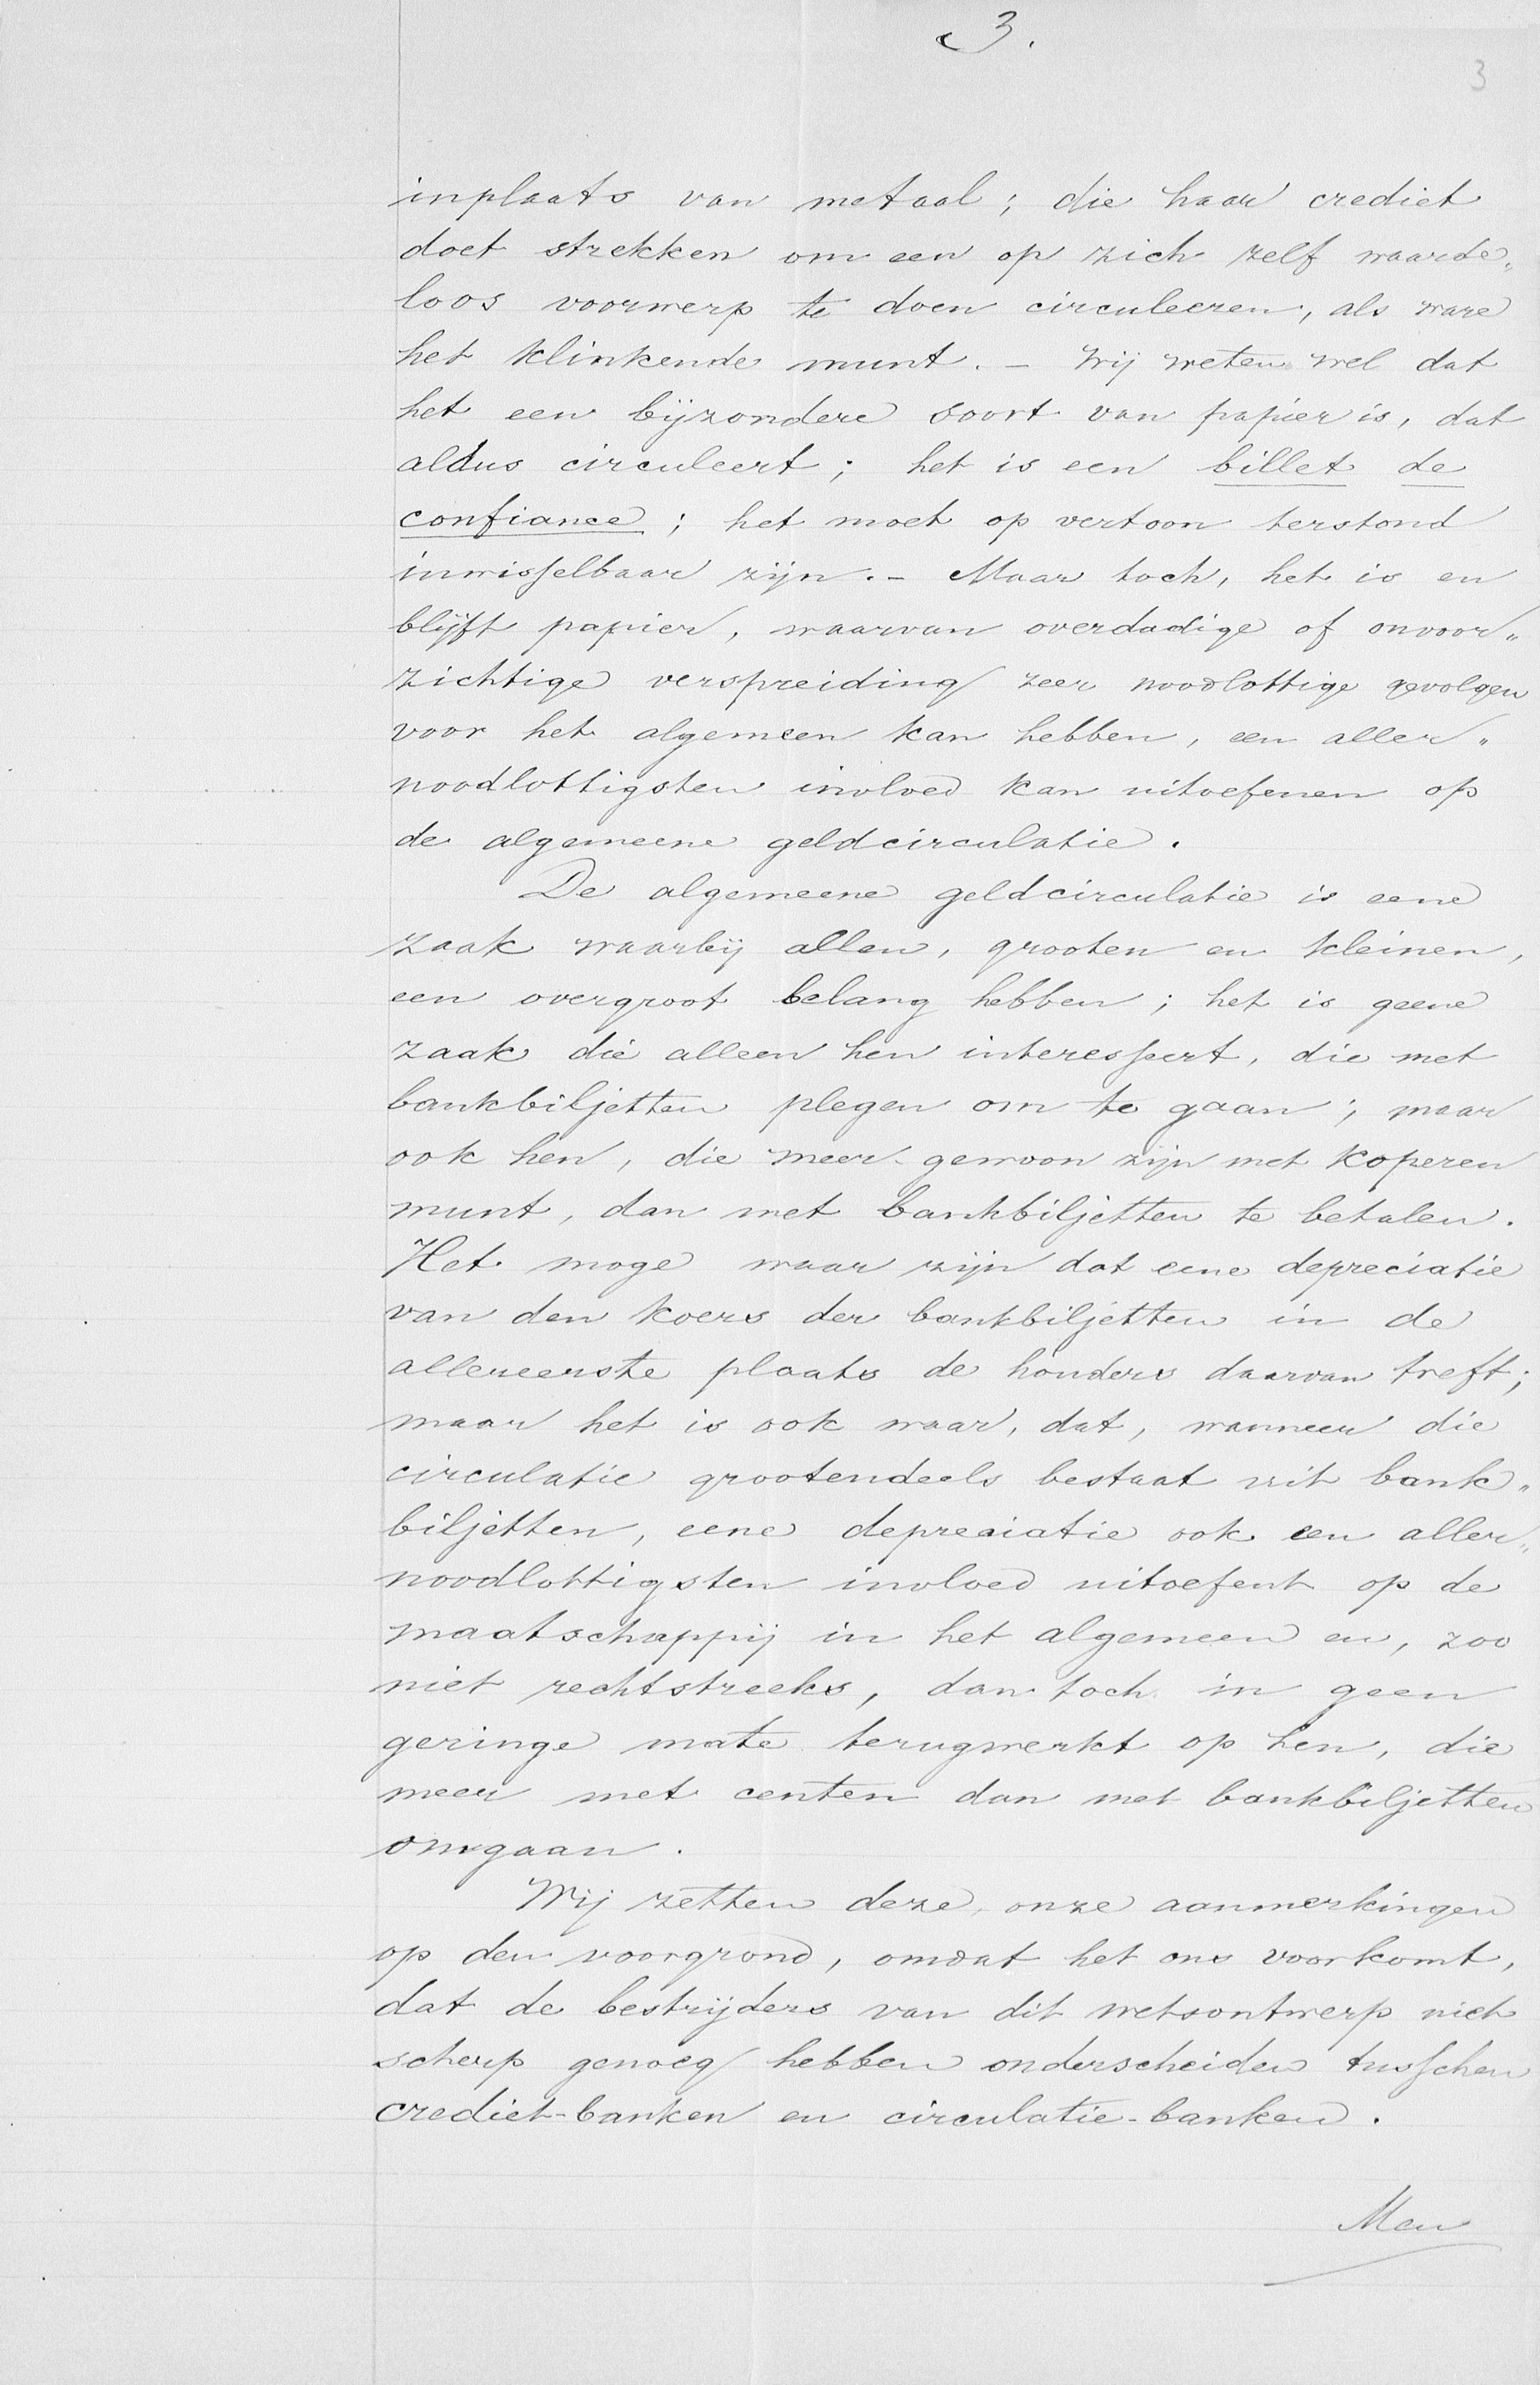 3.
3
inplaats van metaal; die haar crediet
doet strekken om een op zich zelf waarde„
loos voorwerp te doen circuleeren, als ware
het klinkende munt. – Wij weten wel dat
het een bijzondere soort van papier is, dat
aldus circuleert; het is een billet de
confiance; het moet op vertoon terstond
inwisselbaar zijn. – Maar toch, het is en
blijft papier, waarvan overdadige of onvoor„
zichtige verspreiding zeer noodlottige gevolgen
voor het algemeen kan hebben, een aller„
noodlottigsten invloed kan uitoefenen op
de algemeene geldcirculatie.
De algemeene geldcirculatie is eene
zaak waarbij allen, grooten en kleinen,
een overgroot belang hebben; het is geene
zaak die alleen hen interesseert, die met
bankbiljetten plegen om te gaan; maar
ook hen, die meer gewoon zijn met koperen
munt, dan met bankbiljetten te betalen.
Het moge waar zijn dat eene depreciatie
van den koers der bankbiljetten in de
allereerste plaats de houders daarvan treft;
maar het is ook waar, dat, wanneer die
circulatie grootendeels bestaat uit bank„
biljetten, eene depreciatie ook een aller„
noodlottigsten invloed uitoefent op de
maatschappij in het algemeen en, zoo
niet rechtstreeks, dan toch in geen
geringe mate terugwerkt op hen, die
meer met centen dan met bankbiljetten
omgaan.
Wij zetten deze onze aanmerkingen
op den voorgrond, omdat het ons voorkomt,
dat de bestrijders van dit wetsontwerp niet
scherp genoeg hebben onderscheiden tusschen
crediet-banken en circulatie-banken.
Men